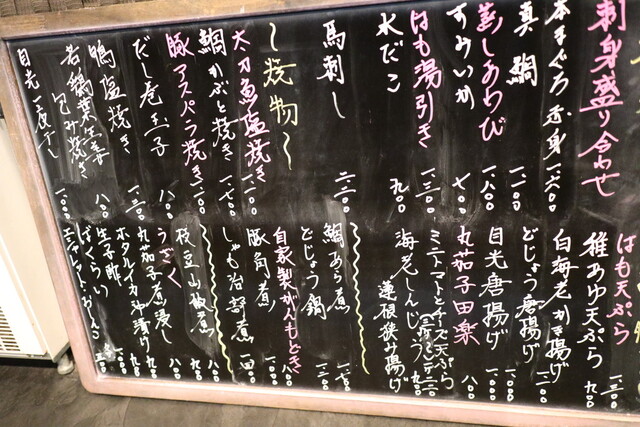 刺身盛り合わせ
本まぐろ赤身 一、六〇〇
真鯛 一、二〇〇
蒸しあわび 一、八〇〇
すみいか
はも湯引き 一、三〇〇
水だこ 九〇〇
馬刺し 二、二〇〇
〜焼物〜
太刀魚塩焼き 一、二〇〇
鯛かぶと焼き 一、七〇〇
豚アスパラ焼き 一、二〇〇
だし巻玉子 八〇〇
鴨塩焼き 一、三〇〇
若鶏葉生姜包み焼き 八〇〇
目光一夜干し 一、〇〇〇
はも天ぷら 一、三〇〇
稚あゆ天ぷら 九〇〇
白海老かき揚げ
どじょう唐揚げ 一、〇〇〇
目光唐揚げ 一、〇〇〇
丸茄子田楽 八〇〇
ミニトマトとチーズ天ぷら
海老しんじょう蓮根挟み揚げ 九〇〇
鯛あら煮
どじょう鍋 一、三〇〇
自家製がんもどき 八〇〇
豚角煮 一、〇〇〇
しゃも治部煮 一、四〇〇
枝豆山椒煮
うざく
丸茄子煮浸し 八〇〇
ホタルイカ沖漬け 九〇〇
生子酢
ばくらい
エシャレットおしんこ